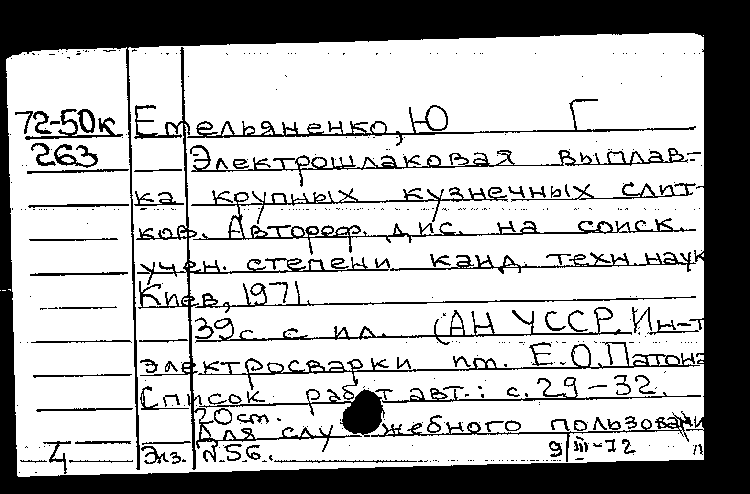 72-50к Емельяненко, Ю Г
263 Электрошлаковая выплав-
ка крупных кузнечных слит-
ков. Автореф. дис. на соиск.
учен. степени канд. техн. наук
Киев, 1971.
39 с. с ил. (АН УССР. Ин-т
электросварки им. Е.О. Патона
Список работ авт.: с. 29-32.
20 см.
Для служебного пользовани
4 Экз. N 56. 9/III-72